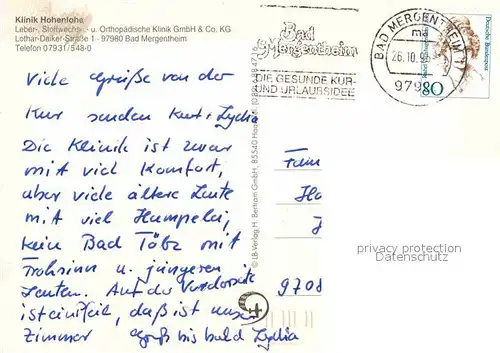 Klinik Hohenlohe
Leber-, Stoffwechsel- u. Orthopädische Klinik GmbH & Co. KG
Lothar-Daiker-Straße 1 · 97980 Bad Mergentheim
Telefon 07931/548-0
Viele Grüße von der
Kur senden Kurt + Lydia
Die Klinik ist zwar
mit viel Komfort,
aber viele ältere Leute
mit viel Humpeln,
kein Bad Tölz mit
Frohsinn u. jüngeren
Leuten. Auf der Vorderseite
ist ein Pfeil, daß ist unser
Zimmer Gruß bis bald Lydia
Bad
Mergentheim
DIE GESUNDE KUR-
UND URLAUBSIDEE
BAD MERGENTHEIM 1
ma
26.10.95
9798
80
Deutsche Bundespost
© LB-Verlag H. Bertram GmbH, 85540 Haar
Fam
Ha
9708
privacy protection
Datenschutz